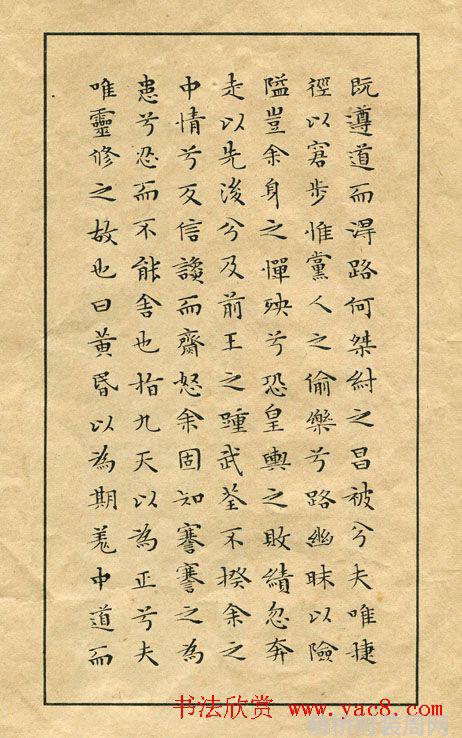 既遵道而得路何桀紂之昌被兮夫唯捷
徑以窘步惟黨人之偷樂兮路幽昧以險
隘豈余身之憚殃兮恐皇輿之敗績忽奔
走以先後兮及前王之踵武荃不揆余之
中情兮反信讒而齋怒余固知謇謇之為
患兮忍而不能舍也指九天以為正兮夫
唯靈修之故也曰黃昏以為期羌中道而
书法欣赏 www.yac8.com